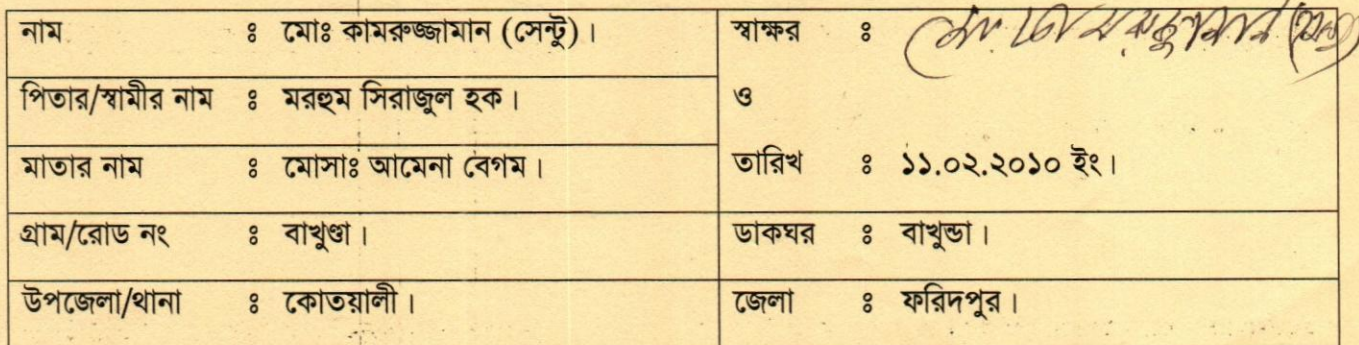 নাম ঃ মোঃ কামরুজ্জামান (সেন্টু)। স্বাক্ষর ঃ মোঃ কামরুজ্জামান (সেন্টু)
পিতার/স্বামীর নাম ঃ মরহুম সিরাজুল হক। ও
মাতার নাম ঃ মোসাঃ আমেনা বেগম। তারিখ ঃ ১১.০২.২০১০ ইং।
গ্রাম/রোড নং ঃ বাখুণ্ডা। ডাকঘর ঃ বাখুন্ডা।
উপজেলা/থানা ঃ কোতয়ালী। জেলা ঃ ফরিদপুর।